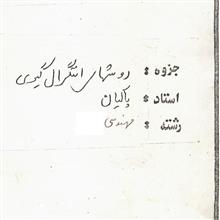 جزوه : روشهای انتگرال گیری
استاد : پاکیان
رشته : مهندسی